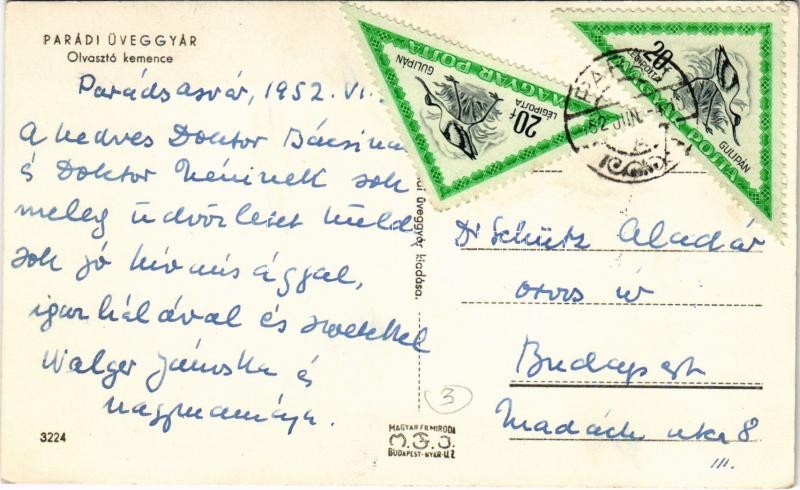 PARÁDI ÜVEGGYÁR
Olvasztó kemence
Parádsasvár, 1952. VI.
A kedves Doktor Bácsina
é Doktor Néninek sok
meleg üdvözletet küld
sok jó kívánsággal,
igaz hálával és szeretettel
Walger Jánoska é
nagymamája.
3224
üveggyár kiadása.
MAGYAR FILMIRODA
M.F.I.
BUDAPEST-NYÁR-U.2
3
MAGYAR POSTA
LÉGIPOSTA
20f
GULIPÁN
MAGYAR POSTA
LÉGIPOSTA
20f
GULIPÁN
52 JUN.
Dr Schütz Aladár
orvos úr
Budapest
Madách utca 8
III.